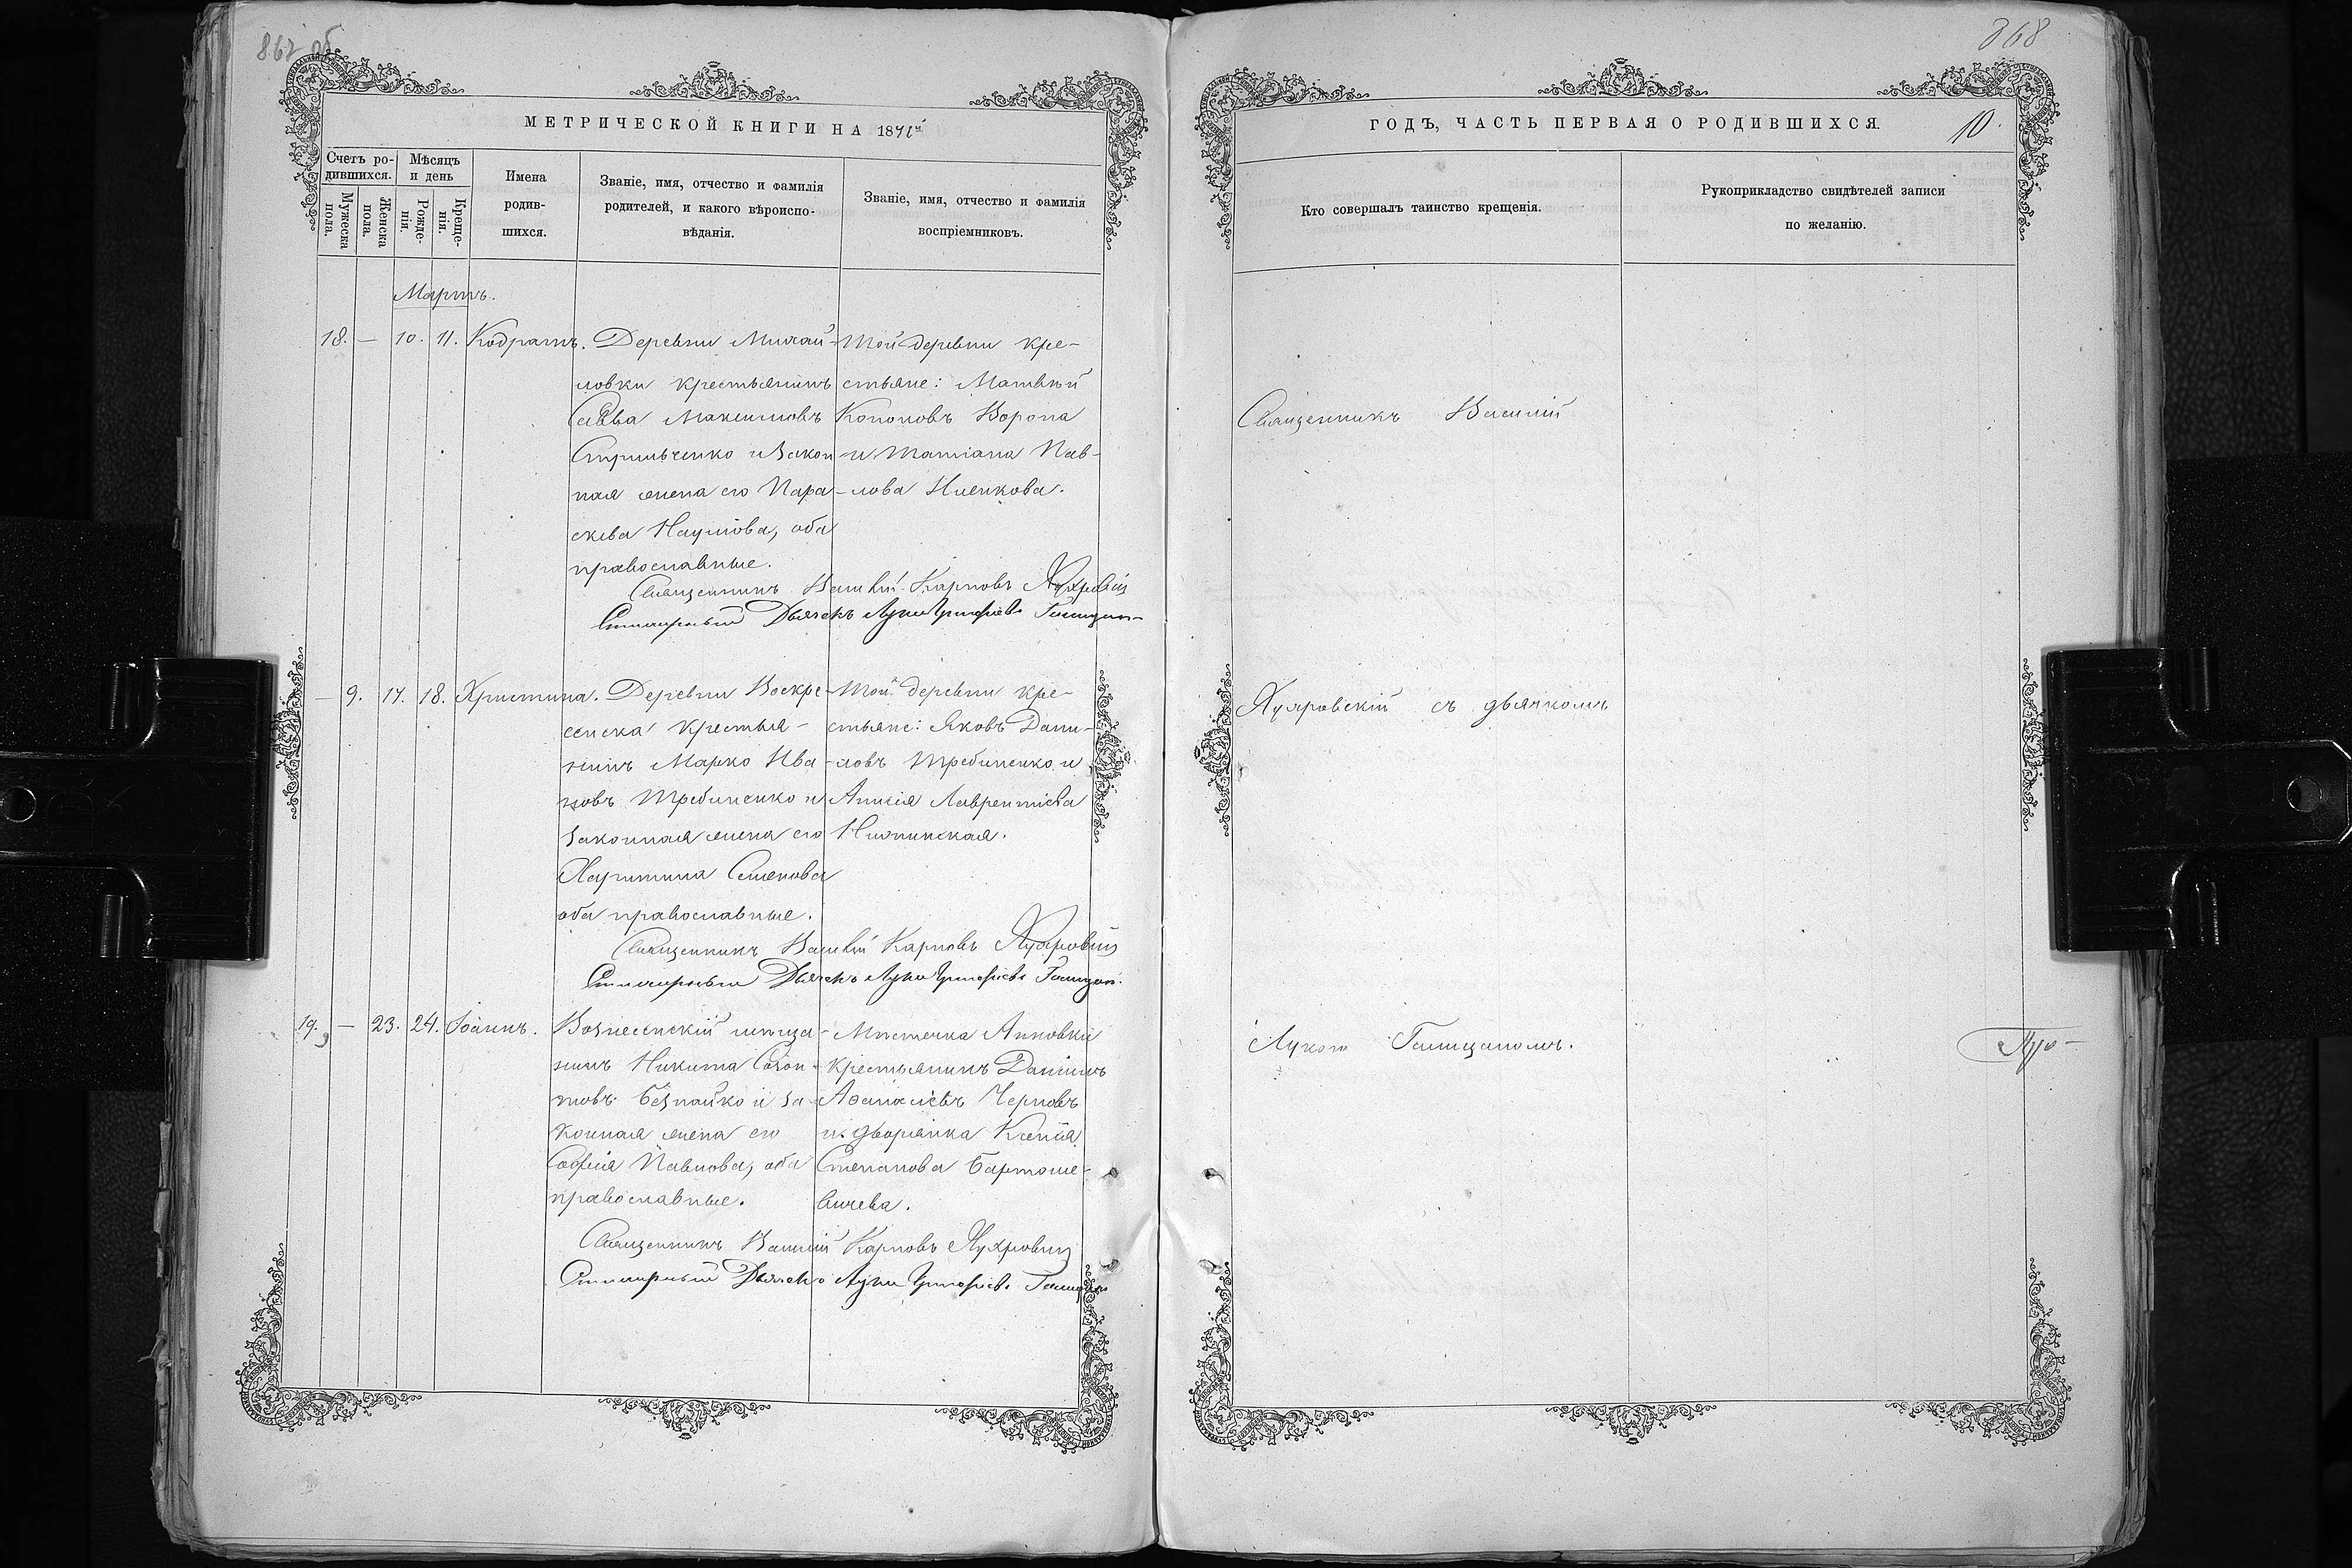 867 об
МЕТРИЧЕСКОЙ КНИГИ НА 1871й
Счетъ ро-
дившихся.
Мѣсяцъ
и день
Мужеска
пола.
Женска
пола.
Рожде-
нія.
Креще-
нія.
Имена
родив-
шихся.
Званіе, имя, отчество и фамилія
родителей, и какого вѣроиспо-
вѣданія.
Званіе, имя, отчество и фамилія
воспріемниковъ.
Мартъ.
18. — 10. 11. Кодратъ.
Деревни Михай-
ловки крестьянинъ
Савва Максимовъ
Стрильченко и закон-
ная жена его Пара-
скева Наумова, оба
православные.
Той деревни кре-
стьяне: Матвѣй
Кононовъ Ворона
и Татіана Пав-
лова
Священникъ Василій Карповъ
Дьячекъ Лука Григорьевъ
— 9. 17. 18. Христина.
Деревни Воскре-
сенска крестья-
нинъ Марко Ива-
новъ Требиненко и
законная жена его
Харитина Семенова
оба православные.
Той деревни кре-
стьяне: Яковъ Дани-
ловъ Требиненко и
Анисія Лаврентіева
Священникъ Василій Карповъ
Дьячекъ Лука Григорьевъ
19. — 23. 24. Іоаннъ.
Вознесенскій мѣща-
нинъ Никита Созон-
товъ Безпайко и за-
конная жена его
Софія Павлова, оба
православные.
Мѣстечка Анновки
крестьянинъ Даніилъ
Аѳанасіевъ Черновъ
и дворянка Ксенія
Степанова Бартоше-
вичева.
Священникъ Василій Карповъ
Дьячекъ Лука Григорьевъ
868
ГОДЪ, ЧАСТЬ ПЕРВАЯ О РОДИВШИХСЯ.
10.
Кто совершалъ таинство крещенія.
Рукоприкладство свидѣтелей записи
по желанію.
Священникъ Василій
съ дьячкомъ
Лукою Галицаномъ.